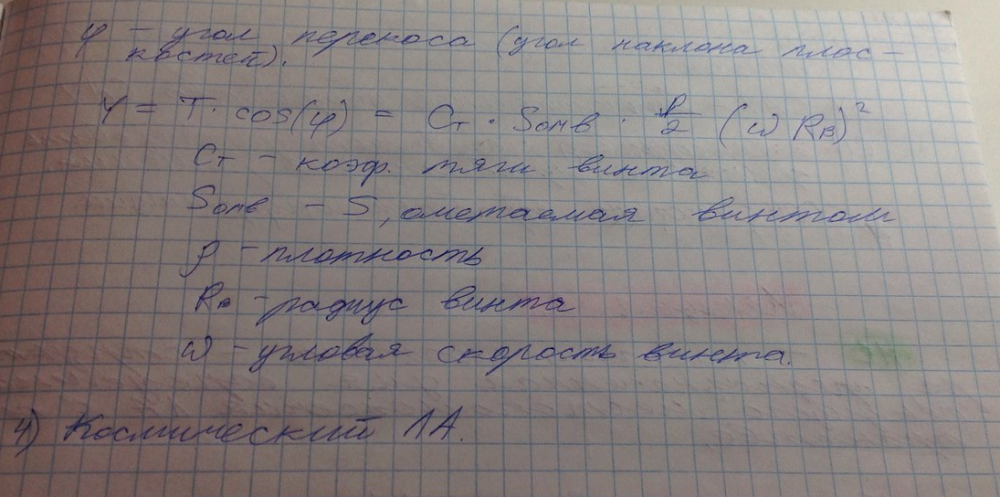 φ – угол перекоса (угол наклона плос-
костей).
Y = T · cos(φ) = Cт · Sомв · ρ/2 (ω Rв)²
Cт – коэф. тяги винта
Sомв – S, ометаемая винтом
ρ – плотность
Rв – радиус винта
ω – угловая скорость винта.
4) Космический ЛА.